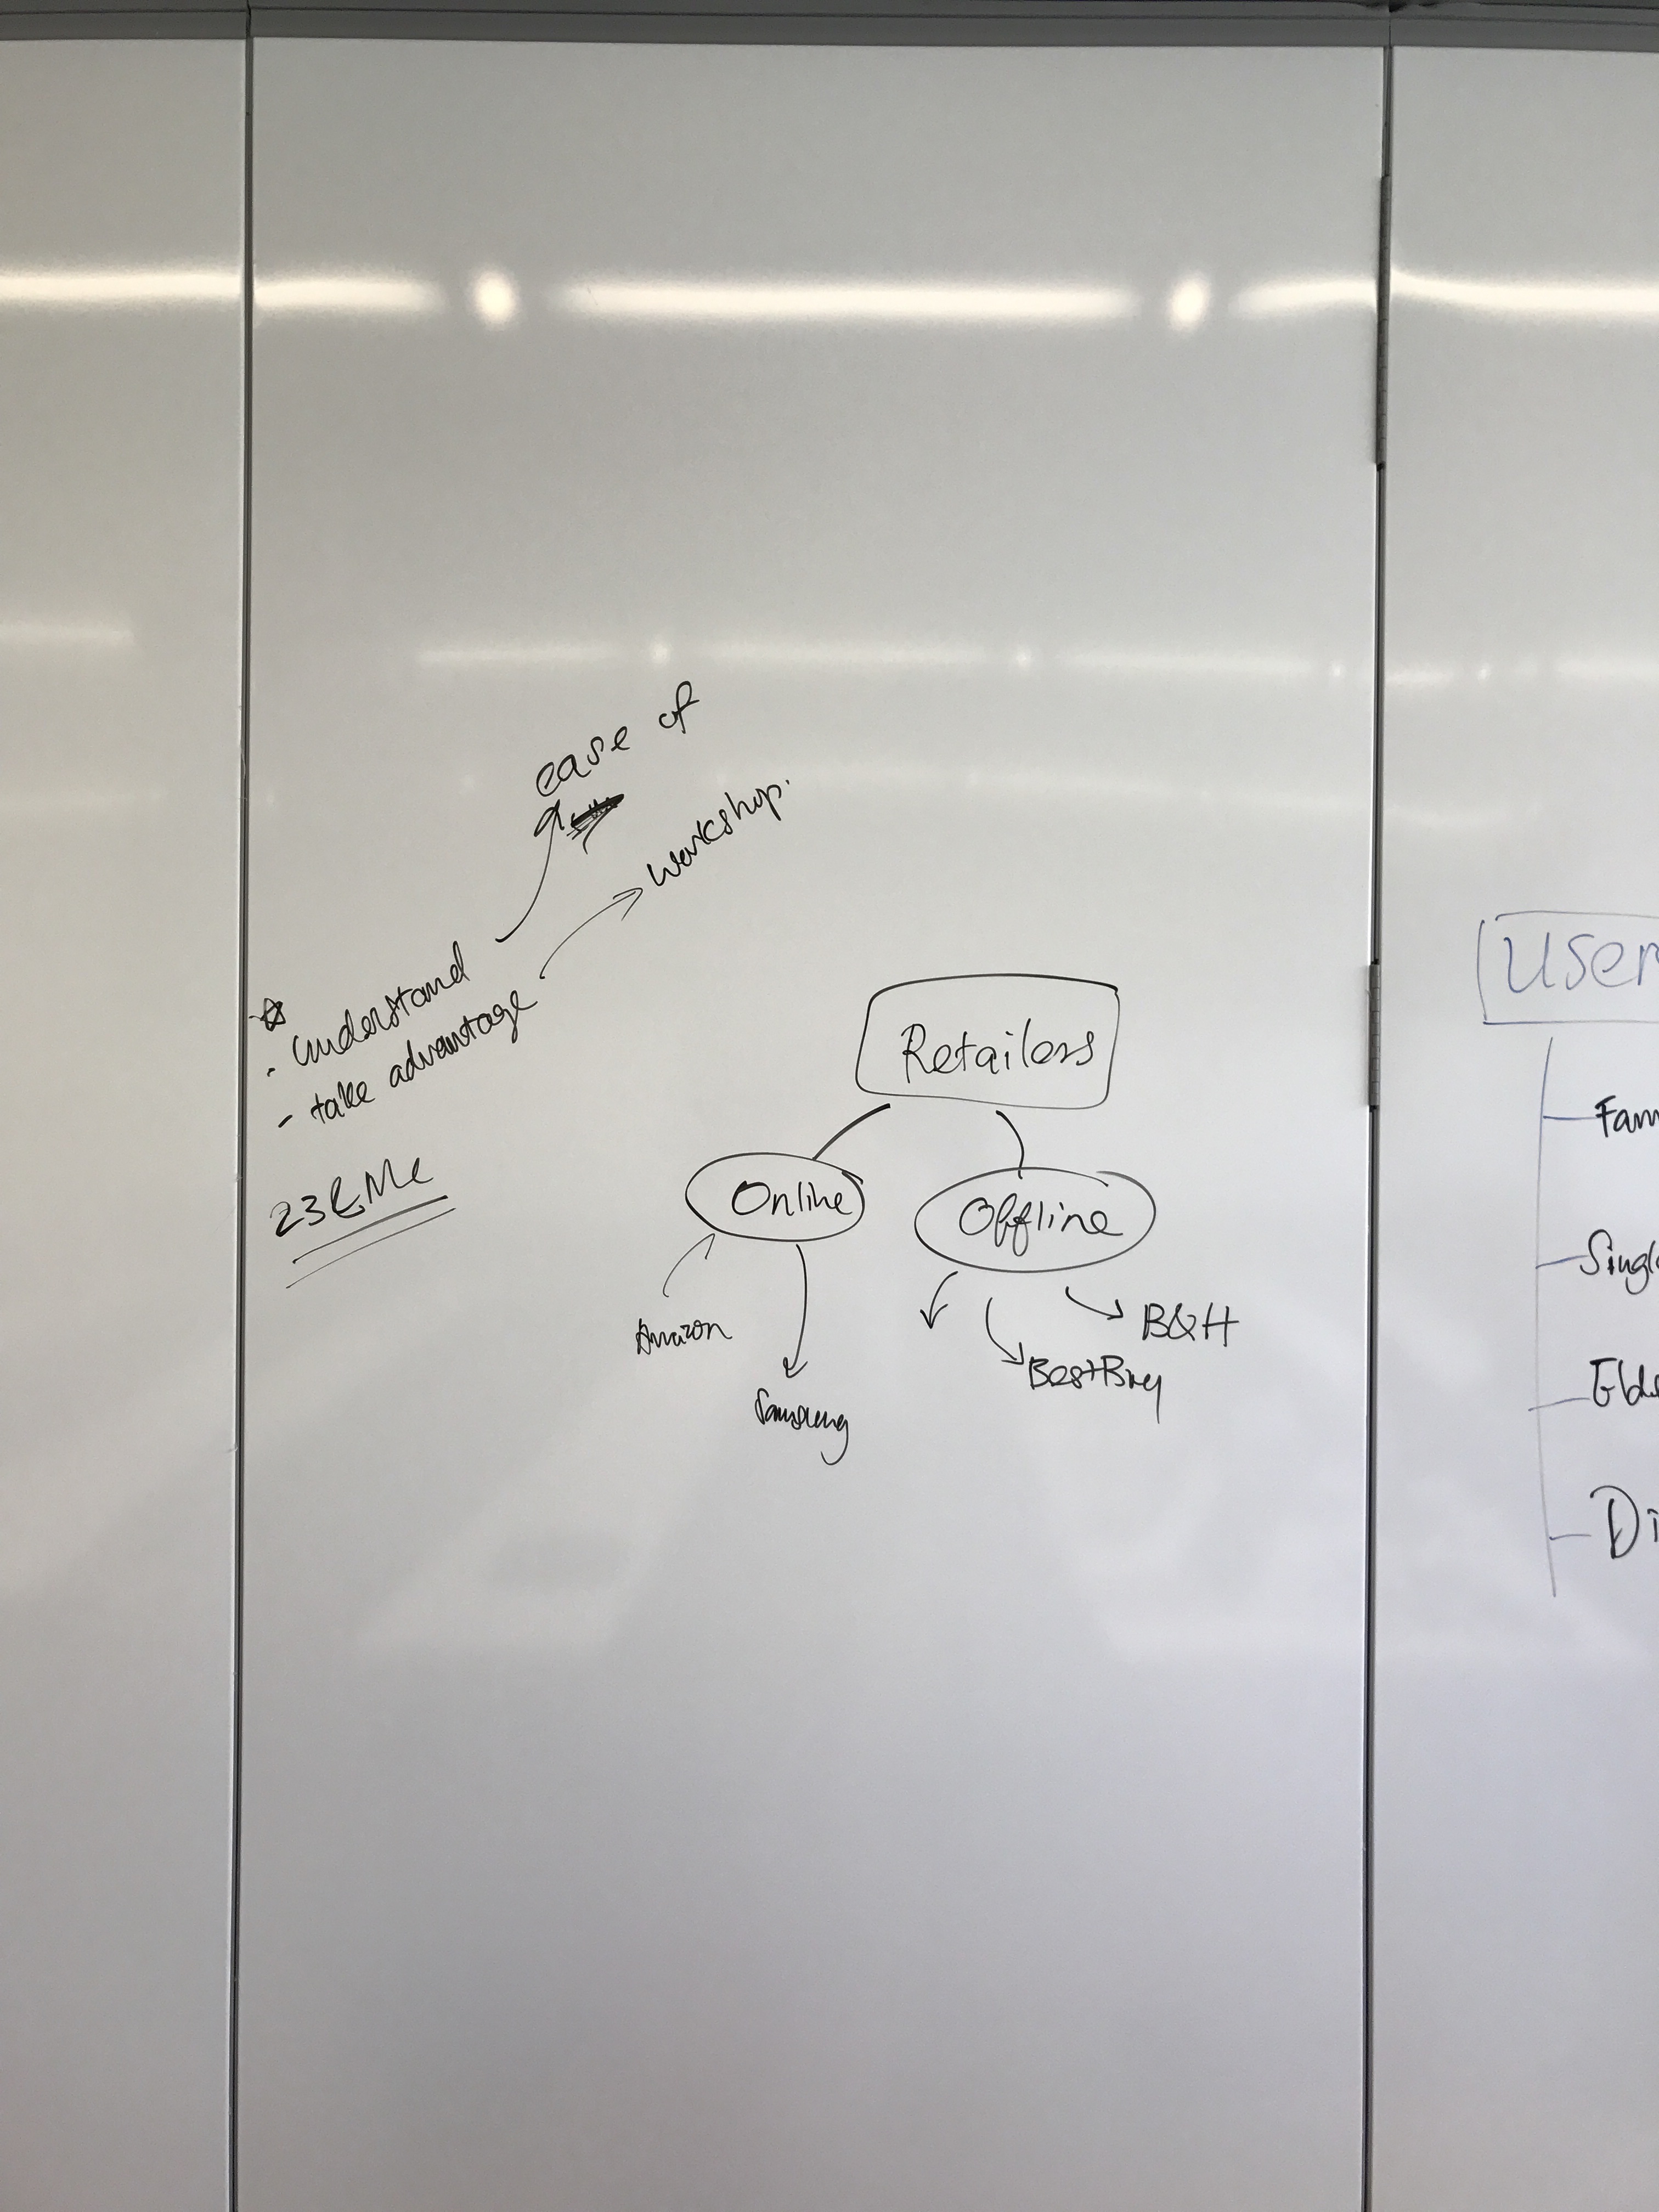 ease of
workshop.
· understand
- take advantage
23&Me
Retailers
Online
Offline
Amazon
Samsung
BestBuy
B&H
User
Fam
Singl
Elde
Di